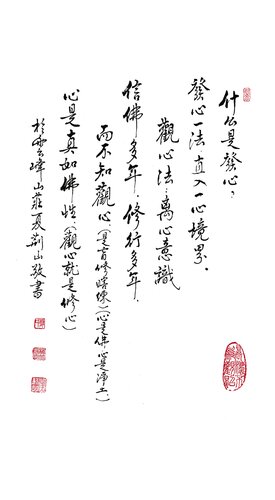 什么是發心？
發心一法，直入一心境界。
觀心法：離心意識
信佛多年，修行多年，
而不知觀心。（是盲修瞎練）（心是佛，心是淨土。）
心是真如佛性。（觀心就是修心）
山莊夏荊山敬書